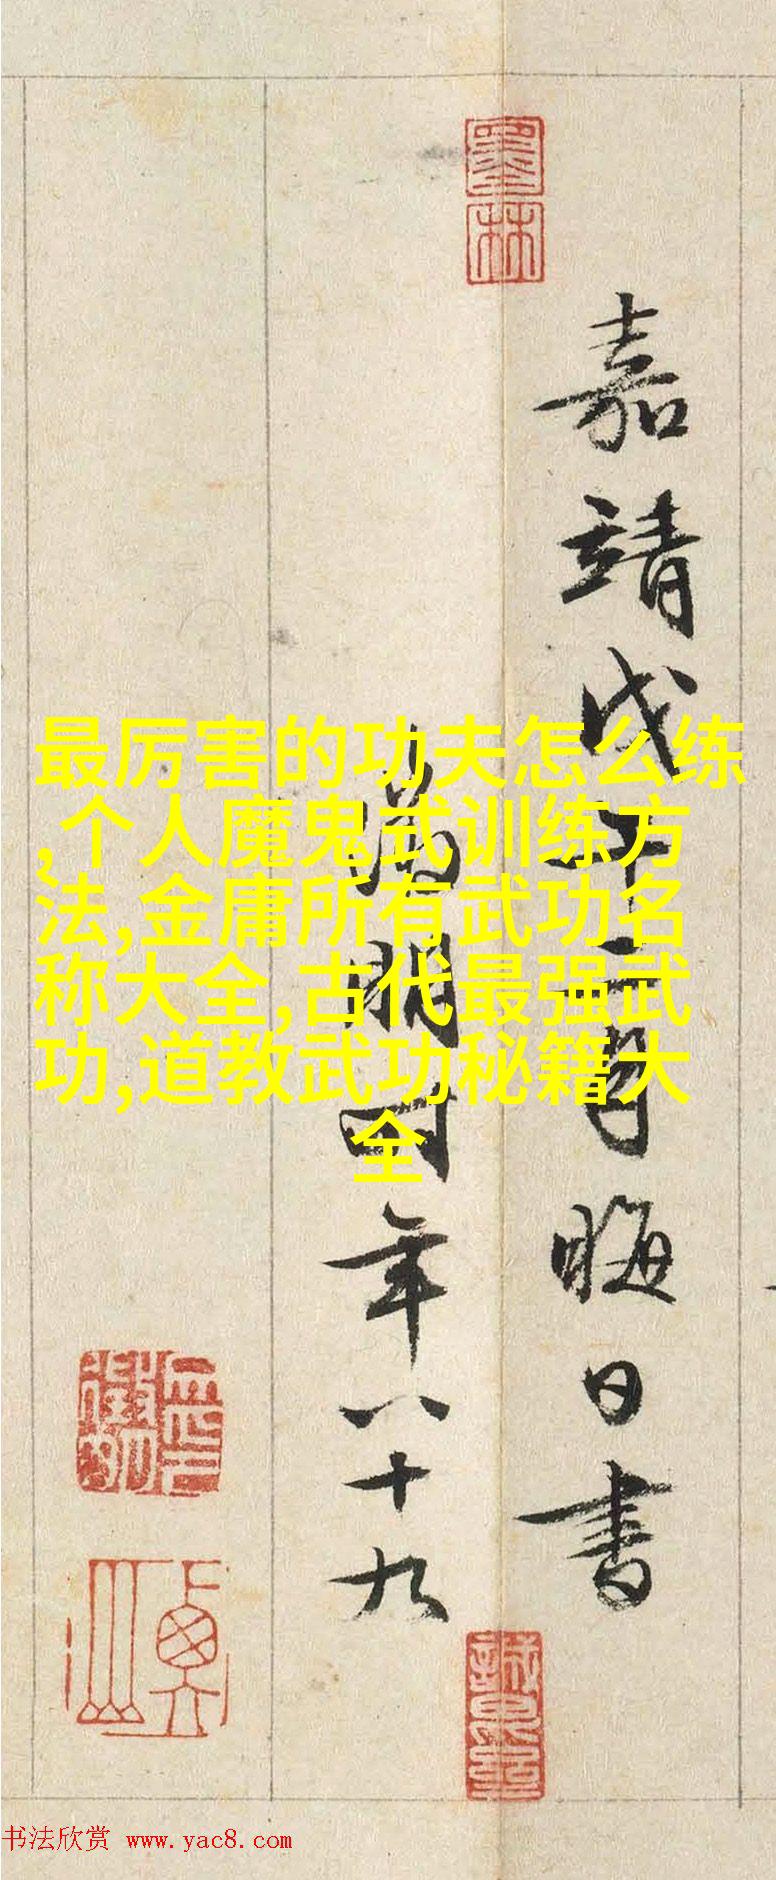 墨林
嘉靖戊午二月晦日書
徵明時年八十九
最厉害的功夫怎么练
,个人魔鬼式训练方
法,金庸所有武功名
称大全,古代最强武
功,道教武功秘籍大
全
衡山
书法欣赏 www.yac8.com